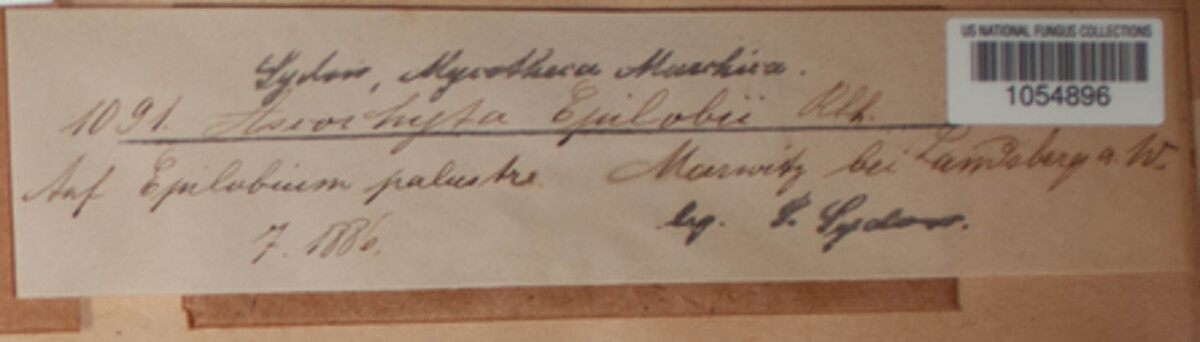 US NATIONAL FUNGUS COLLECTIONS
1054896
Sydow, Mycotheca Marchica.
1091. Ascochyta Epilobii Rbh.
Auf Epilobium palustre. Marwitz bei Landsberg a. W.
7. 1886. leg. P. Sydow.